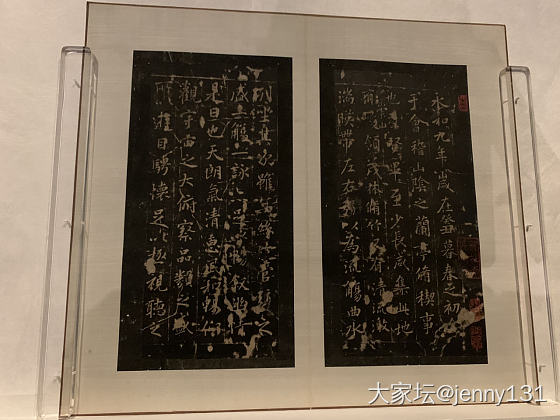 永和九年歲在癸丑暮春之初
于會稽山陰之蘭亭脩稧事
也賢畢至少長咸集此地
領茂林脩竹有清流激
湍暎帶左右以為流觴曲水
列坐其次雖無絲竹管弦之
盛一觴一詠足暢敘幽情
是日也天朗氣清惠風和暢仰
觀宇宙之大俯察品類之盛
所遊目騁懷足以極視聽之
大家坛@jenny131